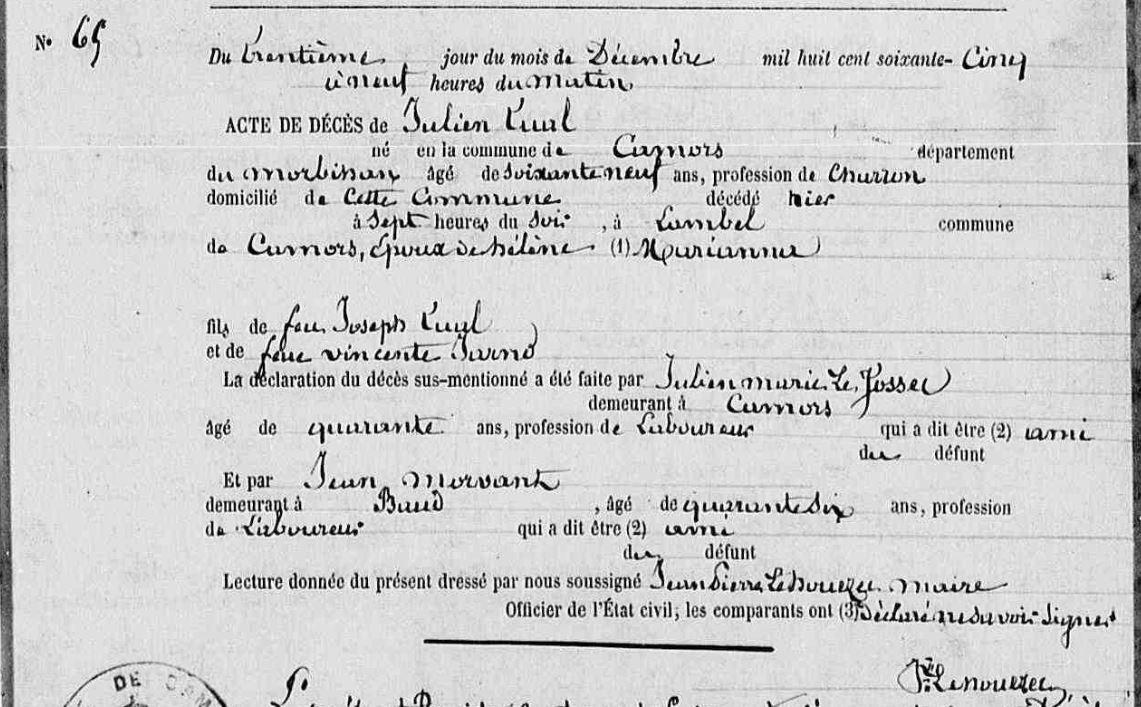 N° 65
Du trentième jour du mois de Décembre mil huit cent soixante-Cinq
à neuf heures du Matin
ACTE DE DÉCÈS de Julien Kual
né en la commune de Camors département
du Morbihan âgé de Soixante neuf ans, profession de Charron
domicilié de Cette Commune décédé hier
à Sept heures du Soir, à Lambel commune
de Camors, Epoux de hélène (1) Marianne
fils de feu Joseph Kual
et de feue vincente
La déclaration du décès sus-mentionné a été faite par Julien Marie Le Jossec
demeurant à Camors
âgé de quarante ans, profession de Laboureur qui a dit être (2) ami
du défunt
Et par Jean Morvant
demeurant à Baud, âgé de quarante Six ans, profession
de Laboureur qui a dit être (2) ami
du défunt
Lecture donnée du présent dressé par nous soussigné Jean Pierre Lehouezec maire
Officier de l'État civil; les comparants ont (3) Déclaré ne savoir Signer
Lehouezec
DE CAM